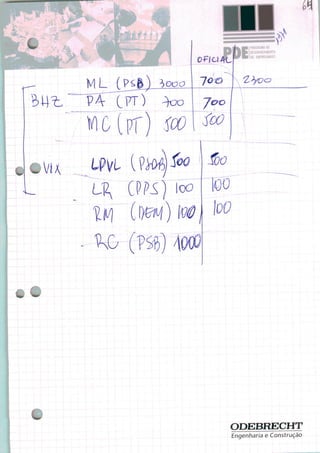 64
PDE PROGRAMA DE DESENVOLVIMENTO DE EMPRESÁRIOS
OFICIAL
ML (PSB) 3000 700 2300
BHZ PA (PT) 700 700
MC (PT) 500 500
VIX LPVL (PSDB) 500 500
LR (PPS) 100 100
RM (DEM) 100 100
RC (PSB) 1000
ODEBRECHT
Engenharia e Construção